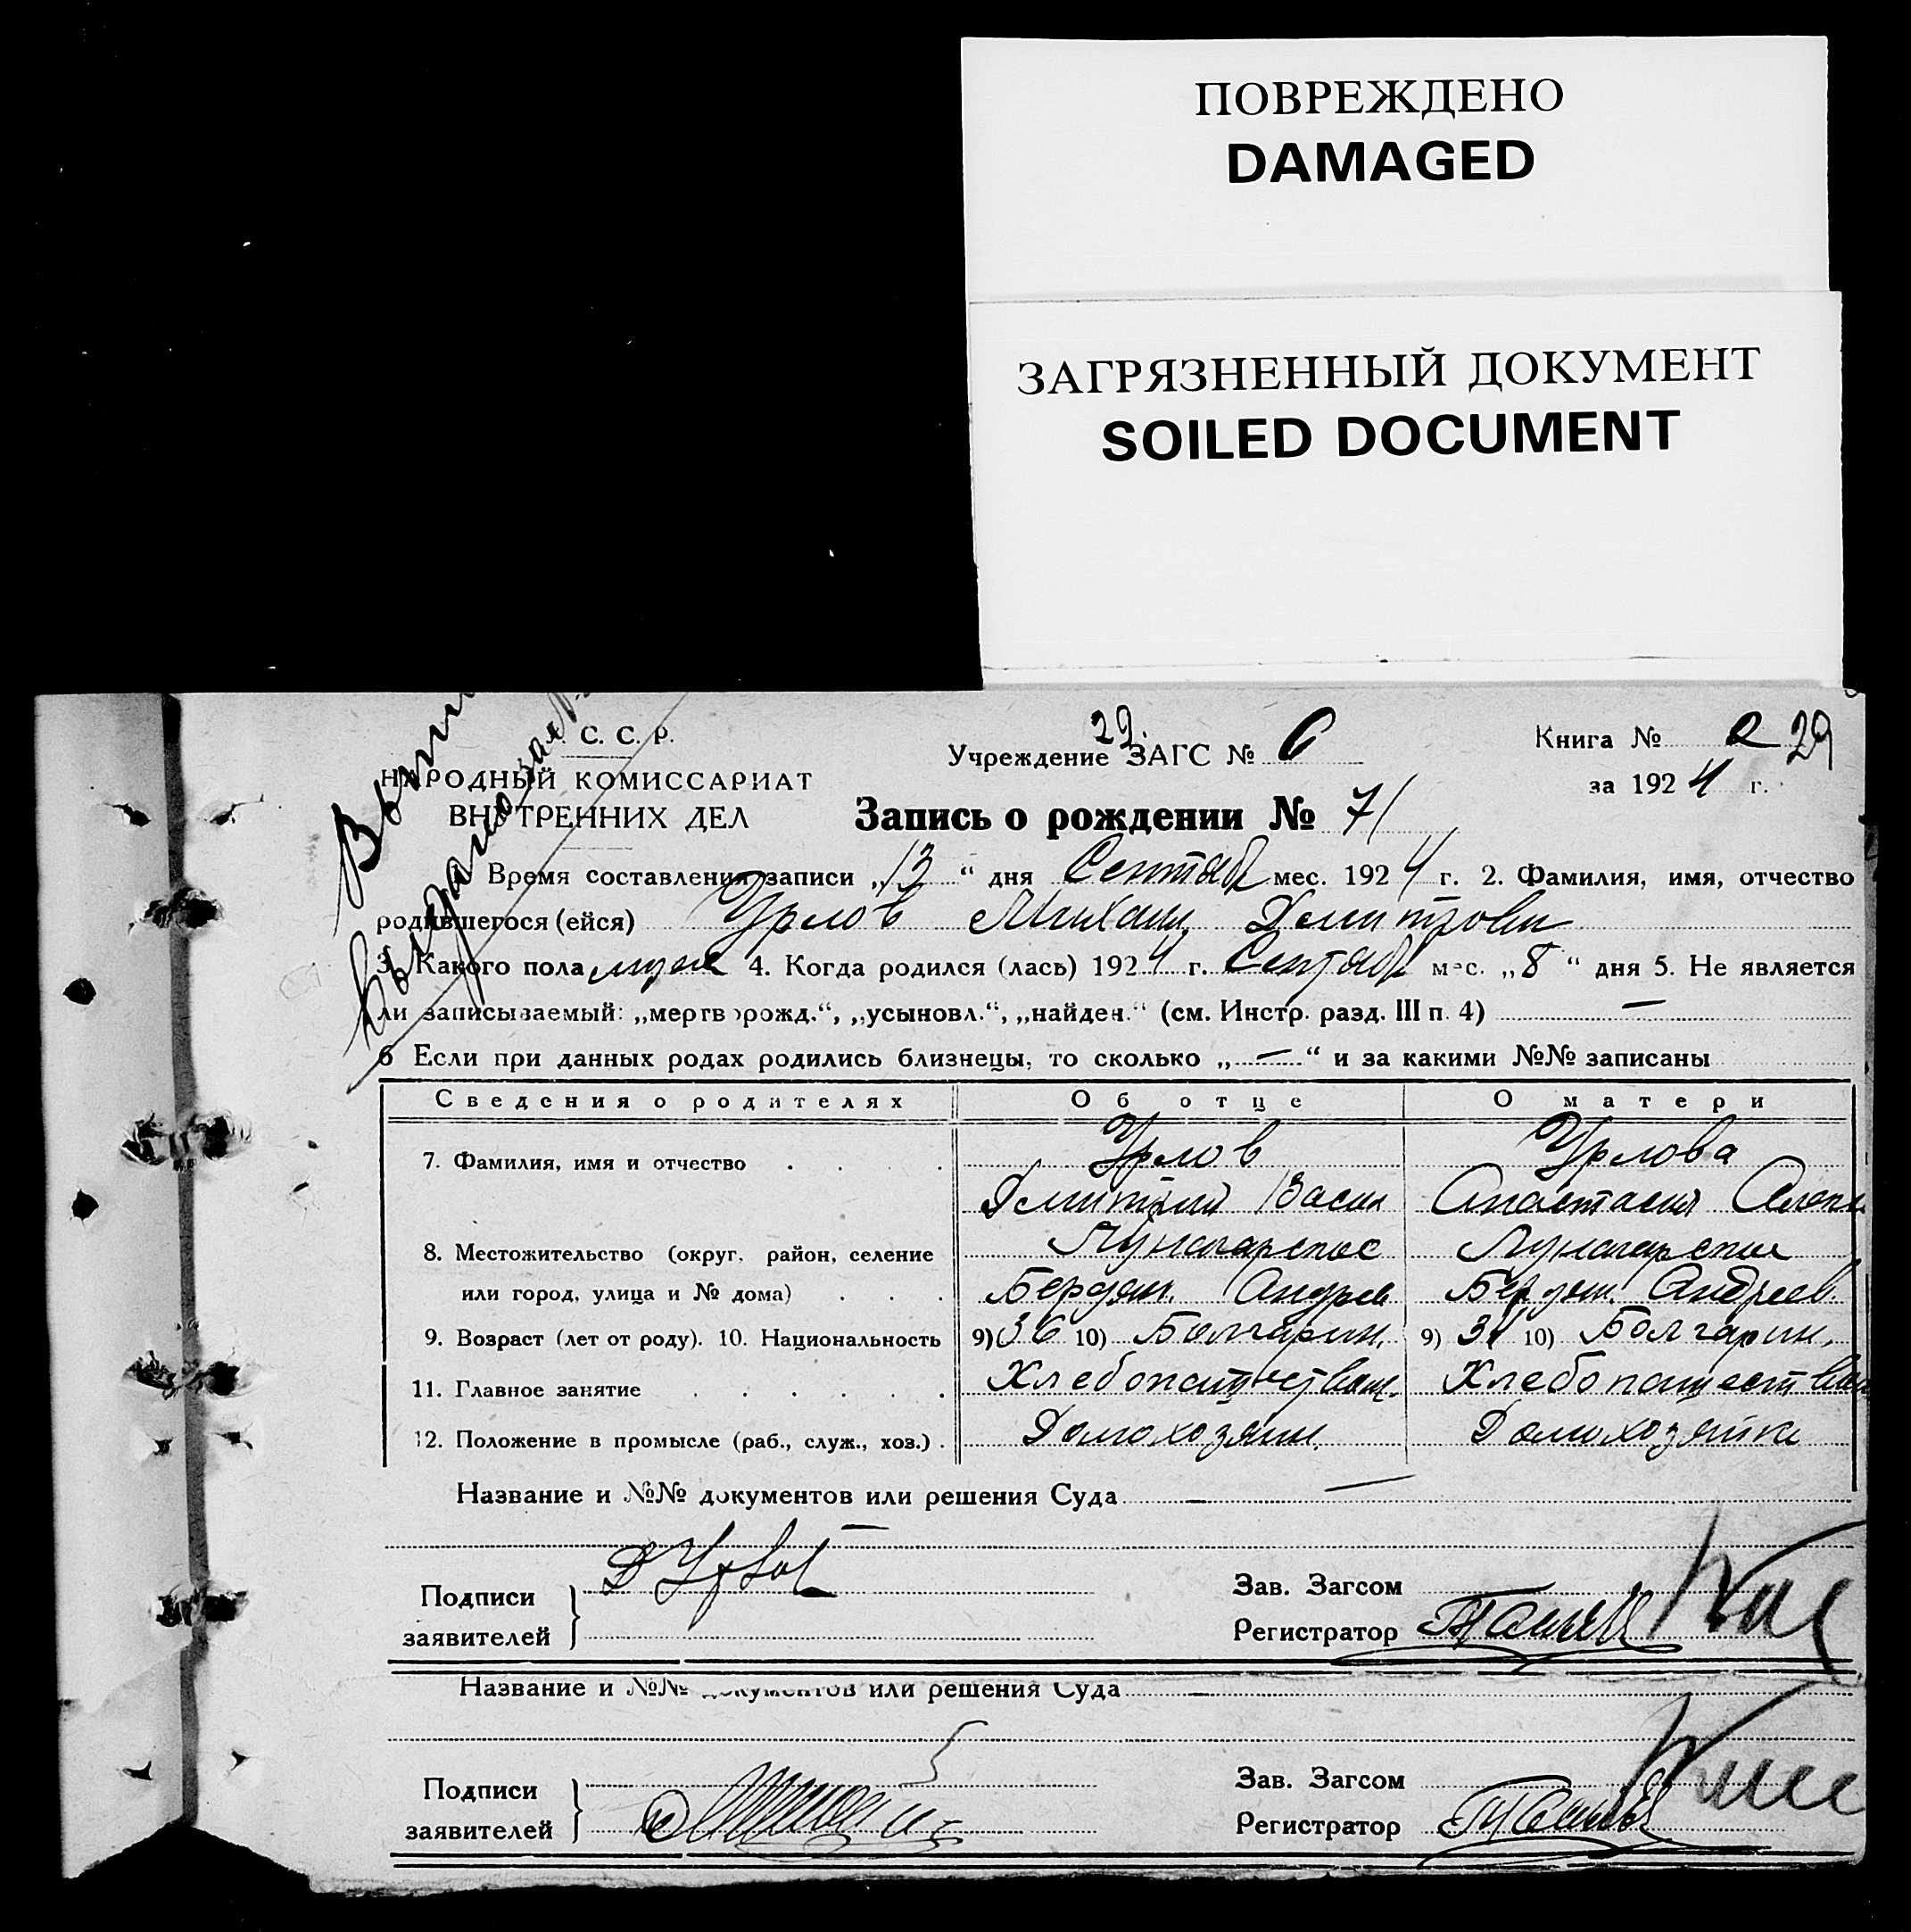 ПОВРЕЖДЕНО
DAMAGED
ЗАГРЯЗНЕННЫЙ ДОКУМЕНТ
SOILED DOCUMENT
С. С. Р.
НАРОДНЫЙ КОМИССАРИАТ
ВНУТРЕННИХ ДЕЛ
29.
Учреждение ЗАГС № 6
Книга № 29
за 1924 г.
Запись о рождении № 71
Время составления записи „13“ дня Сентяб мес. 1924 г. 2. Фамилия, имя, отчество
родившегося (ейся) Урлов Михаил Дмитрови
3. Какого пола муж 4. Когда родился (лась) 1924 г. Сентяб мес. „8“ дня 5. Не является
ли записываемый: „мертворожд.“, „усыновл.“, „найден.“ (см. Инстр. разд. III п. 4) —
6 Если при данных родах родились близнецы, то сколько „—“ и за какими №№ записаны
Сведения о родителях Об отце О матери
7. Фамилия, имя и отчество . . . . Урлов Урлова
Дмитрий Васил Анастасия
8. Местожительство (округ, район, селение
или город, улица и № дома) . . . Бердян. Андрев Бердян. Андреев.
9. Возраст (лет от роду). 10. Национальность 9) 36 10) Болгарин. 9) 31 10) Болгарин.
11. Главное занятие . . . . . . Хлебопашеством. Хлебопашеством
12. Положение в промысле (раб., служ., хоз.) . Домохозяин. Домохозяйка
Название и №№ документов или решения Суда —
Подписи
заявителей
Зав. Загсом
Регистратор
Название и №№ документов или решения Суда —
Подписи
заявителей
Зав. Загсом
Регистратор